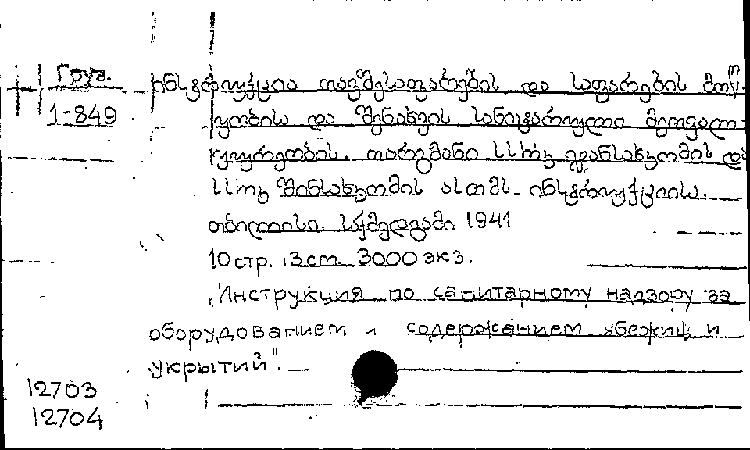 Груз. ინსტრუქცია თავშესაფარების და საფარების მოწ-
1-849 ყობის და შენახვის სანიტარული მეთვალ-
ყურეობის. თარგმანი სსრკ ჯანსახკომის და
სსრკ შინსახკომის ინსტრუქციისა.
თბილისი საქმედგამი 1941
10 стр. 3000 экз.
„Инструкция по санитарному надзору за
оборудованием и содержанием убежищ и
укрытий".
12703
12704